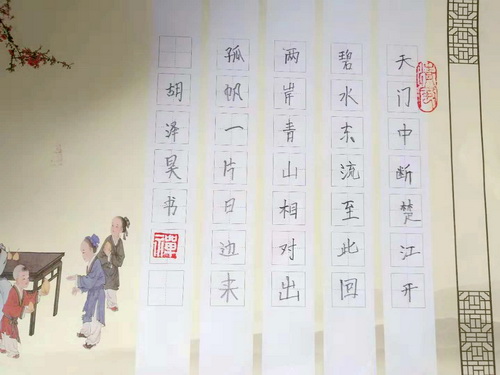 天门中断楚江开
碧水东流至此回
两岸青山相对出
孤帆一片日边来
胡泽昊书